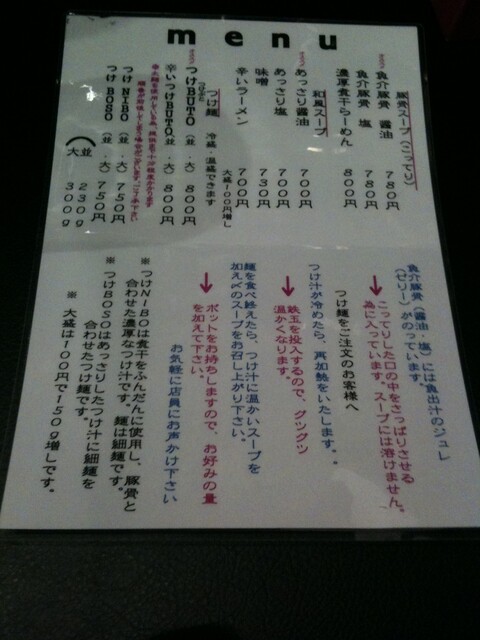 menu
豚骨スープ(こってり)
オススメ
魚介豚骨 醤油 780円
魚介豚骨 塩 780円
濃厚煮干らーめん 800円
和風スープ
オススメ
あっさり醤油 700円
あっさり塩 700円
味噌 730円
辛いラーメン 700円
大盛100円増し
つけ麺 冷盛・温盛できます
オススメ
つけBUTO(並・大)800円
辛いつけBUTO(並・大)800円
つけNIBO(並・大)750円
つけBOSO(並・大)750円
並 230g
大 300g
魚介豚骨(醤油・塩)には魚出汁のジュレ
(ゼリー)がのっています。
→こってりした口の中をさっぱりさせる
為に入っています。スープには溶けません。
つけ麺をご注文のお客様へ
つけ汁が冷めたら、再加熱をいたします。
→鉄玉を投入するので、グツグツ
温かくなります。
麺を食べ終えたら、つけ汁に温かいスープを
加え〆のスープをお召し上がり下さい。
→ポットをお持ちしますので、お好みの量
を加えて下さい。
お気軽に店員にお声かけ下さい
※つけNIBOは煮干をふんだんに使用し、豚骨と
合わせた濃厚なつけ汁です。麺は細麺です。
※つけBOSOはあっさりしたつけ汁に細麺を
合わせたつけ麺です。
※ 大盛は100円で150g増しです。